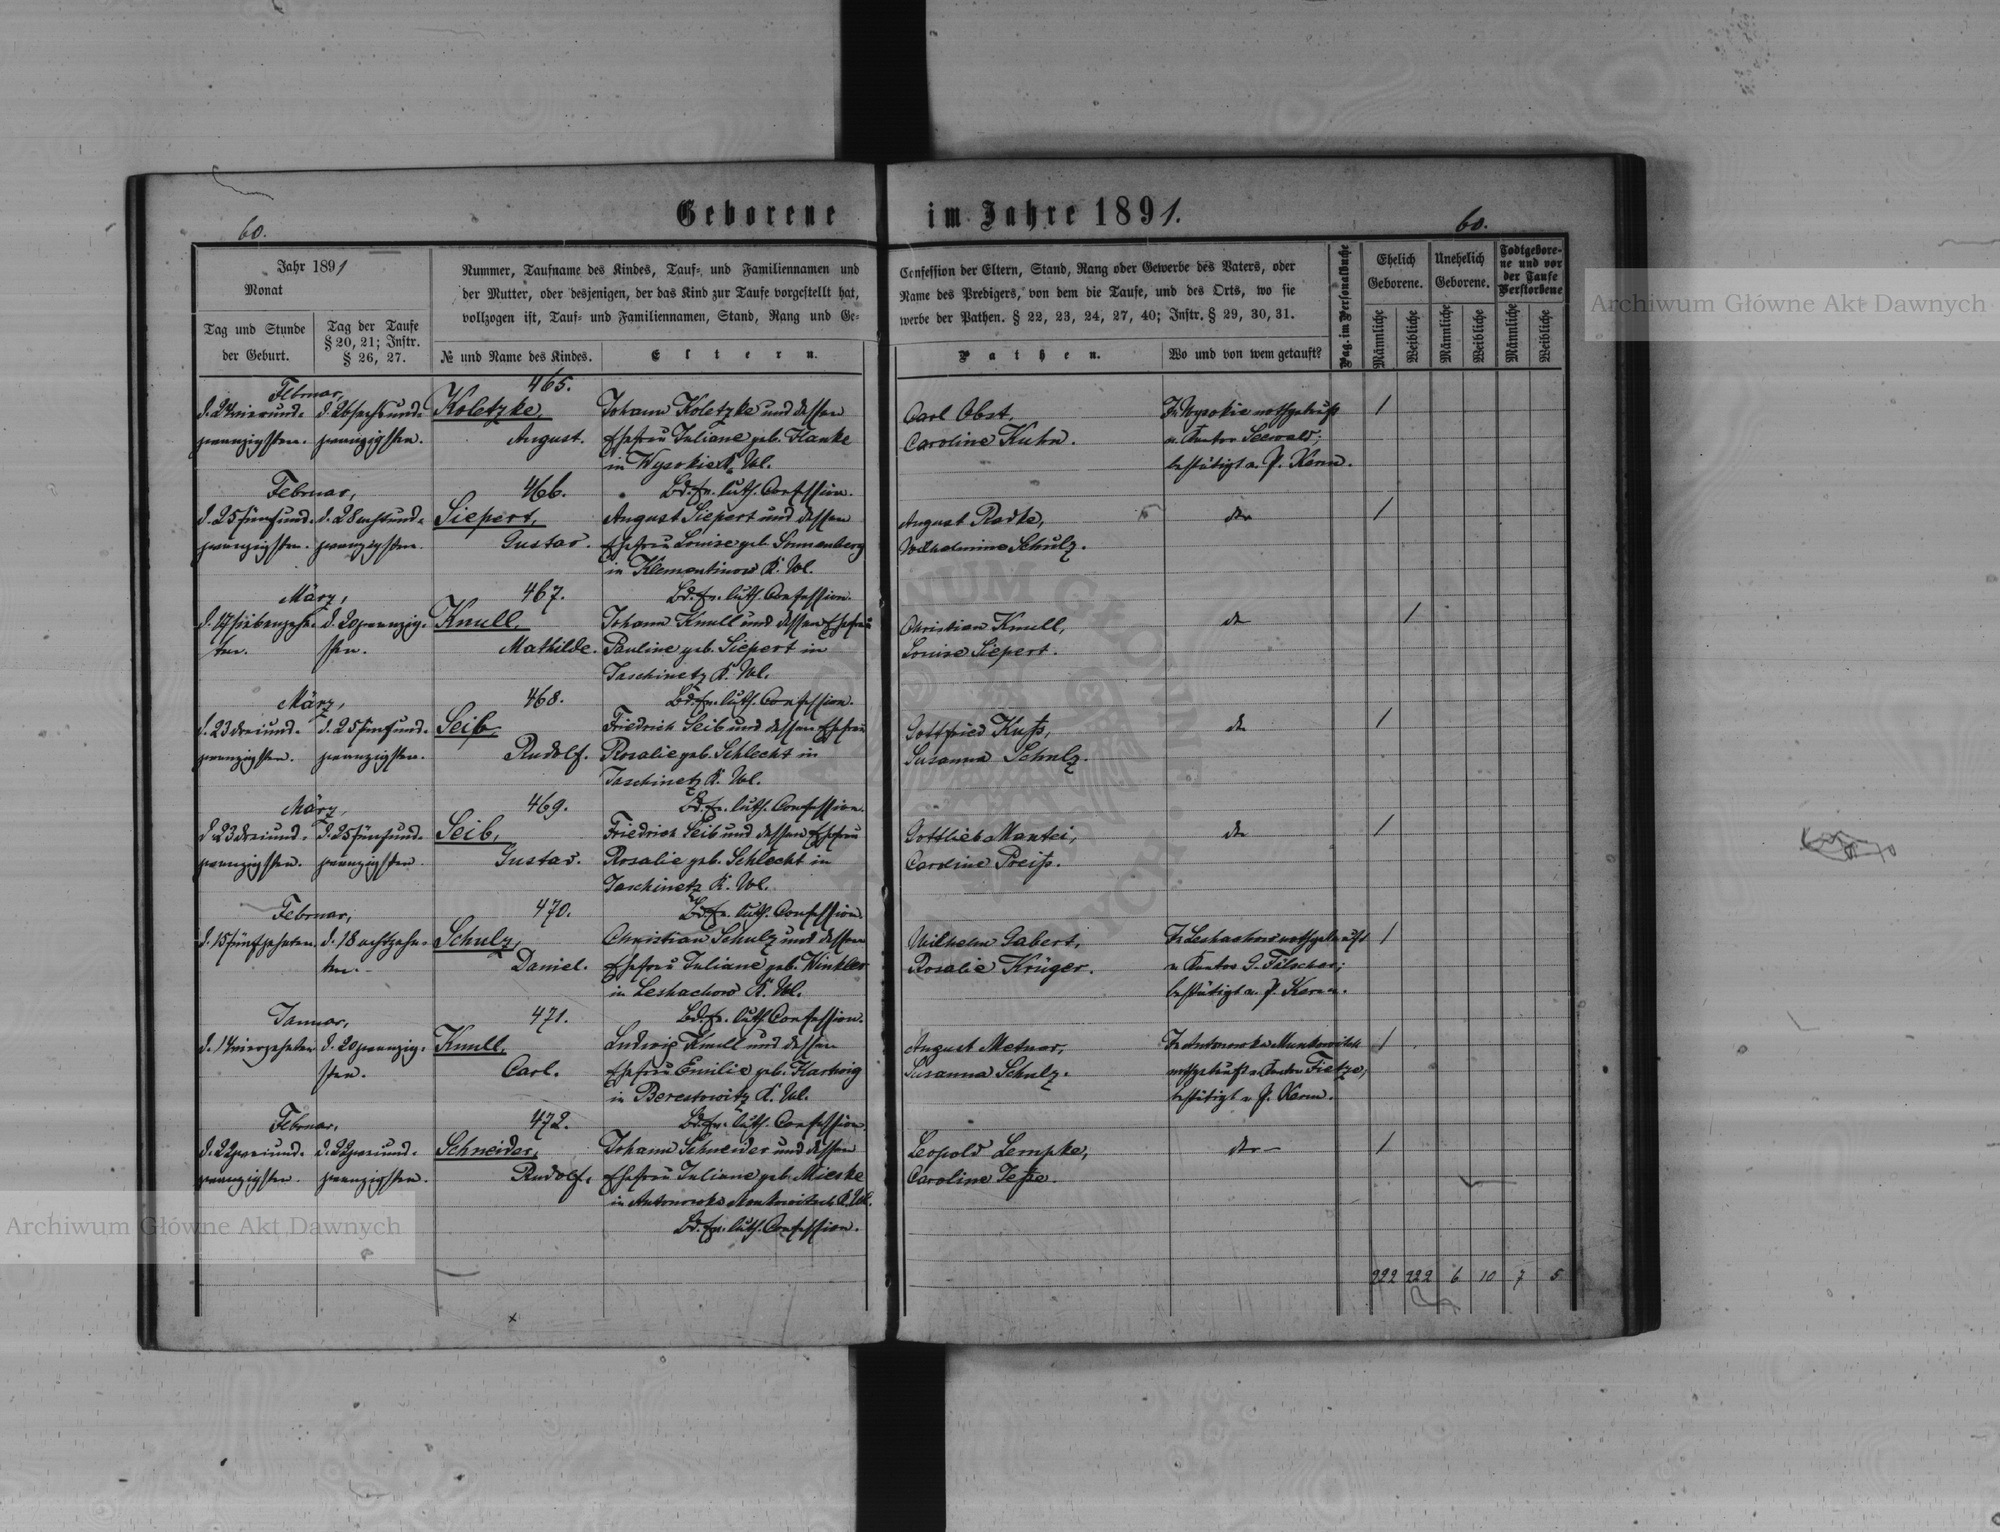 Geborene im Jahre 1891.
60.
60.
Jahr 1891
Monat
Tag und Stunde
der Geburt.
Tag der Taufe
§ 20, 21; Instr.
§ 26, 27.
Nummer, Taufname des Kindes, Tauf- und Familiennamen und
der Mutter, oder desjenigen, der das Kind zur Taufe vorgestellt hat,
vollzogen ist, Tauf- und Familiennamen, Stand, Rang und Ge-
№ und Name des Kindes.
Eltern.
Confession der Eltern, Stand, Rang oder Gewerbe des Vaters, oder
Name des Predigers, von dem die Taufe, und des Orts, wo sie
werbe der Pathen. § 22, 23, 24, 27, 40; Instr. § 29, 30, 31.
Pathen.
Wo und von wem getauft?
Pag. im Personalbuche
Ehelich
Geborene.
Unehelich
Geborene.
Todtgebore-
ne und vor
der Taufe
Verstorbene
Männliche
Weibliche
Männliche
Weibliche
Männliche
Weibliche
Februar,
465.
d. 24 vierund- d. 26 sechsund- Koletzke, Johann Koletzke und dessen Carl Obst, In Wysokie nothgetauft 1
zwanzigsten. zwanzigsten. August. Ehefrau Juliane geb. Hanke Caroline Kuhn. v. Kantor Seewald;
in Wysokie K. Wl. bestätigt v. P. Kerm.
Februar, 466. Bd. Ev. luth. Confession.
d. 25 fünfund- d. 28 achtund- Siepert, August Siepert und dessen August Radke, dto 1
zwanzigsten. zwanzigsten. Gustav. Ehefrau Louise geb. Sonnenberg Wilhelmine Schulz.
in Klementinow K. Wl.
März, 467. Bd. Ev. luth. Confession.
d. 17 siebenzehn- d. 20 zwanzig- Knull, Johann Knull und dessen Ehefrau Christian Knull, dto 1
ten. sten. Mathilde. Pauline geb. Siepert in Louise Siepert.
Jaschinetz K. Wl.
März, 468. Bd. Ev. luth. Confession.
d. 23 dreiund- d. 25 fünfund- Seib Friedrich Seib und dessen Ehefrau Gottfried Kuß, dto 1
zwanzigsten. zwanzigsten. Rudolf. Rosalie geb. Schlecht in Susanna Schulz.
Jaschinetz K. Wl.
März, 469. Bd. Ev. luth. Confession.
d. 23 dreiund- d. 25 fünfund- Seib, Friedrich Seib und dessen Ehefrau Gottlieb Mantei, dto 1
zwanzigsten. zwanzigsten. Gustav. Rosalie geb. Schlecht in Caroline Preiß.
Jaschinetz K. Wl.
Februar, 470. Bd. Ev. luth. Confession.
d. 15 fünfzehnten d. 18 achtzehn- Schulz, Christian Schulz und dessen Wilhelm Gabert, In Leshachow nothgetauft 1
ten. Daniel. Ehefrau Juliane geb. Winkler Rosalie Krüger. v. Kantor G. Fälscher;
in Leshachow K. Wl. bestätigt v. P. Kerm.
Januar, 471. Bd. Ev. luth. Confession.
d. 14 vierzehnten d. 20 zwanzig- Knull, Ludwig Knull und dessen August Metner, In Antonowka 1
sten. Carl. Ehefrau Emilie geb. Hartwig Susanna Schulz. nothgetauft v. Kantor Fietze,
in Berestowitz K. Wl. bestätigt v. P. Kerm.
Februar, 472. Bd. Ev. luth. Confession.
d. 22 zweiund- d. 22 zweiund- Schneider, Johann Schneider und dessen Leopold Lempke, dto 1
zwanzigsten. zwanzigsten. Rudolf. Ehefrau Juliane geb. Mieske Caroline Jeske.
in Antonowka K. Wl.
Bd. Ev. luth. Confession.
222 222 6 10 7 5
Archiwum Główne Akt Dawnych
Archiwum Główne Akt Dawnych